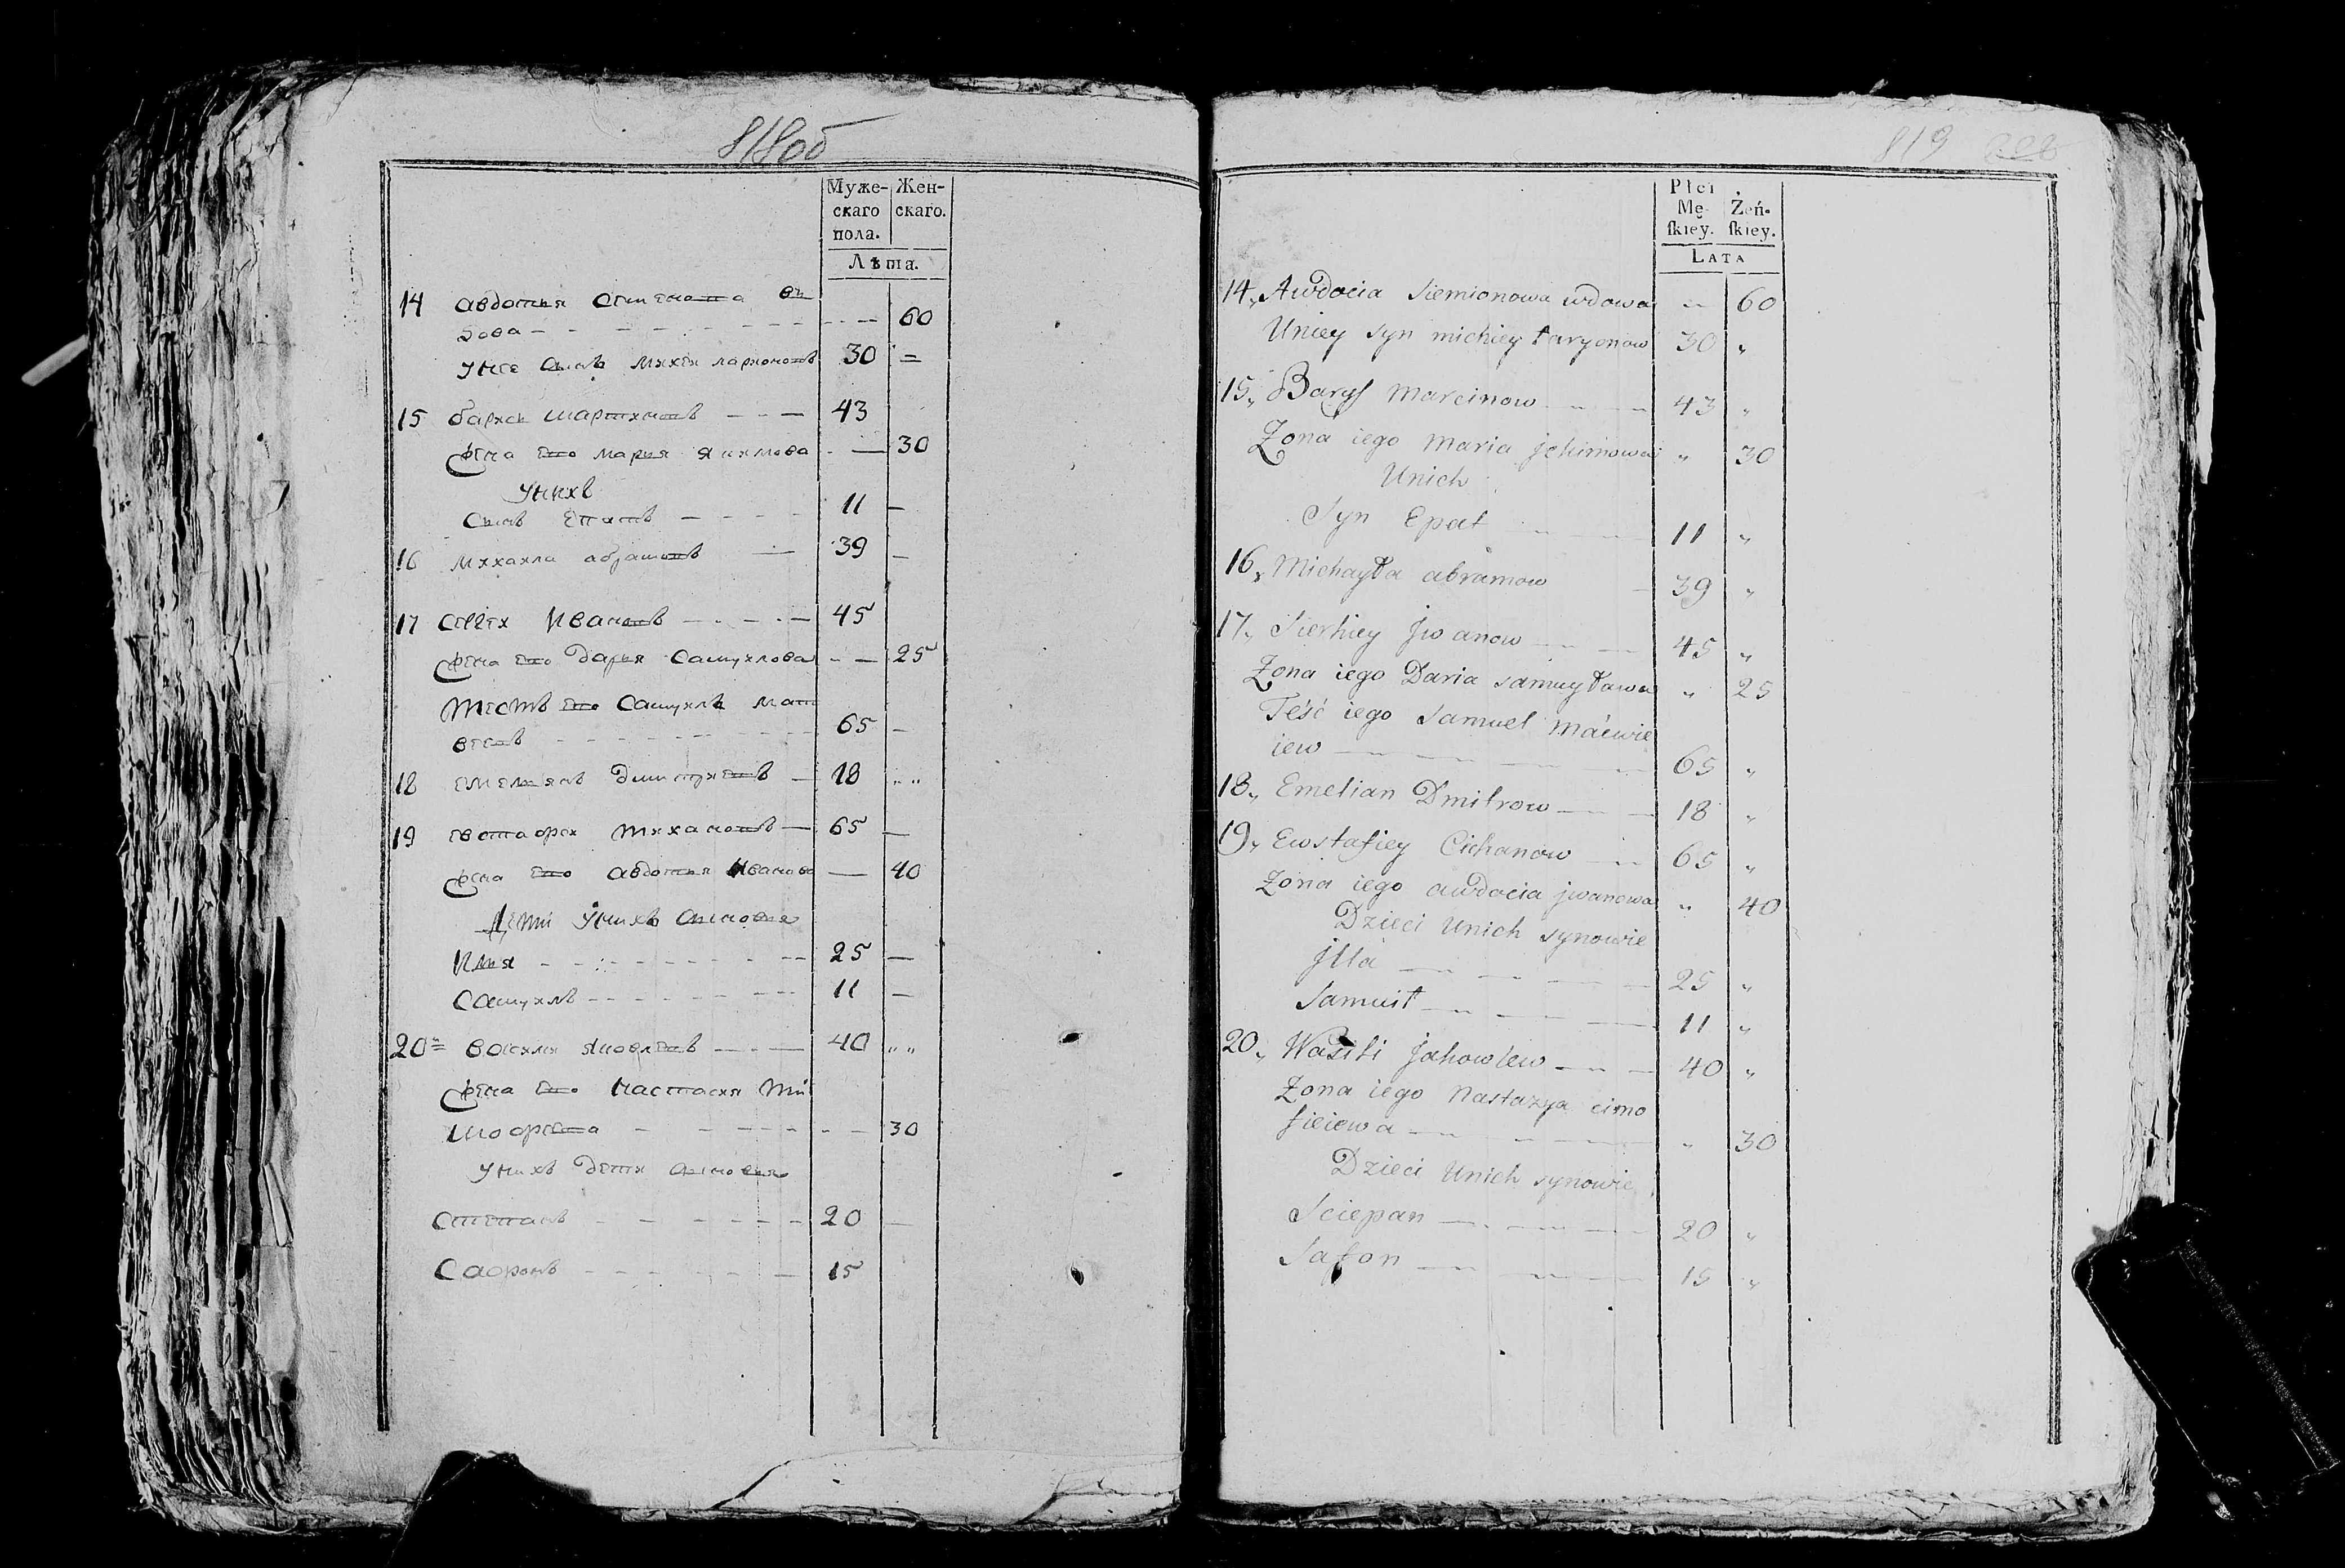 818об
Муже- Жен-
скаго скаго.
пола.
Лѣта.
14 авдотья Семенова в
дова - - - 60
Унее сынъ михей ларионовъ 30 =
15 барысъ мартиновъ - - - 43
жена его марья якимова - — 30
Унихъ
Сынъ Епатъ - - - - 11 —
16 михаила абрамовъ — 39 —
17 Сергеи Ивановъ — - - - — 45
жена его дарья самуилова - — 25
тесть его Самуилъ мат
веевъ - - - - - - - 65 —
18 емельянъ дмитриевъ — 18 „ „
19 евстафеи тихановъ — 65 —
жена его авдотья Иванова — 40
Дети Унихъ сыновья
Илья - - - - - - - - 25 —
Самуилъ - - - - - - - 11 —
20= василии яковлевъ — - — 40 „ „
жена его настасия ти
мофеева - - - - - - 30
Унихъ дети сыновья
Степанъ - - - - - - 20 —
Сафонъ - - - - - - 15
819
Płci
Mę- Żeń-
skiey. skiey.
LATA
14„ Awdocia Siemionowa wdowa „ 60
Uniey syn michiey łaryonow 30 „
15„ Barys Marcinow 43 „
Żona iego maria jakimowa „ 30
Unich
Syn Epat 11 „
16„ Michayła abramow 39 „
17„ Sierhiey jwanow 45 „
Żona iego Daria samuyława „ 25
Teść iego Samuel maćwie
iew 65 „
18„ Emelian Dmitrow 18 „
19„ Ewstafiey Cichanow 65 „
Żona iego awdocia jwanowa „ 40
Dzieci Unich synowie
jlla 25 „
Samuił 11 „
20„ Wasili jakowlew 40 „
Żona iego Nastazya cimo
fieiewa „ 30
Dzieci Unich synowie
Sciepan 20 „
Safon 15 „